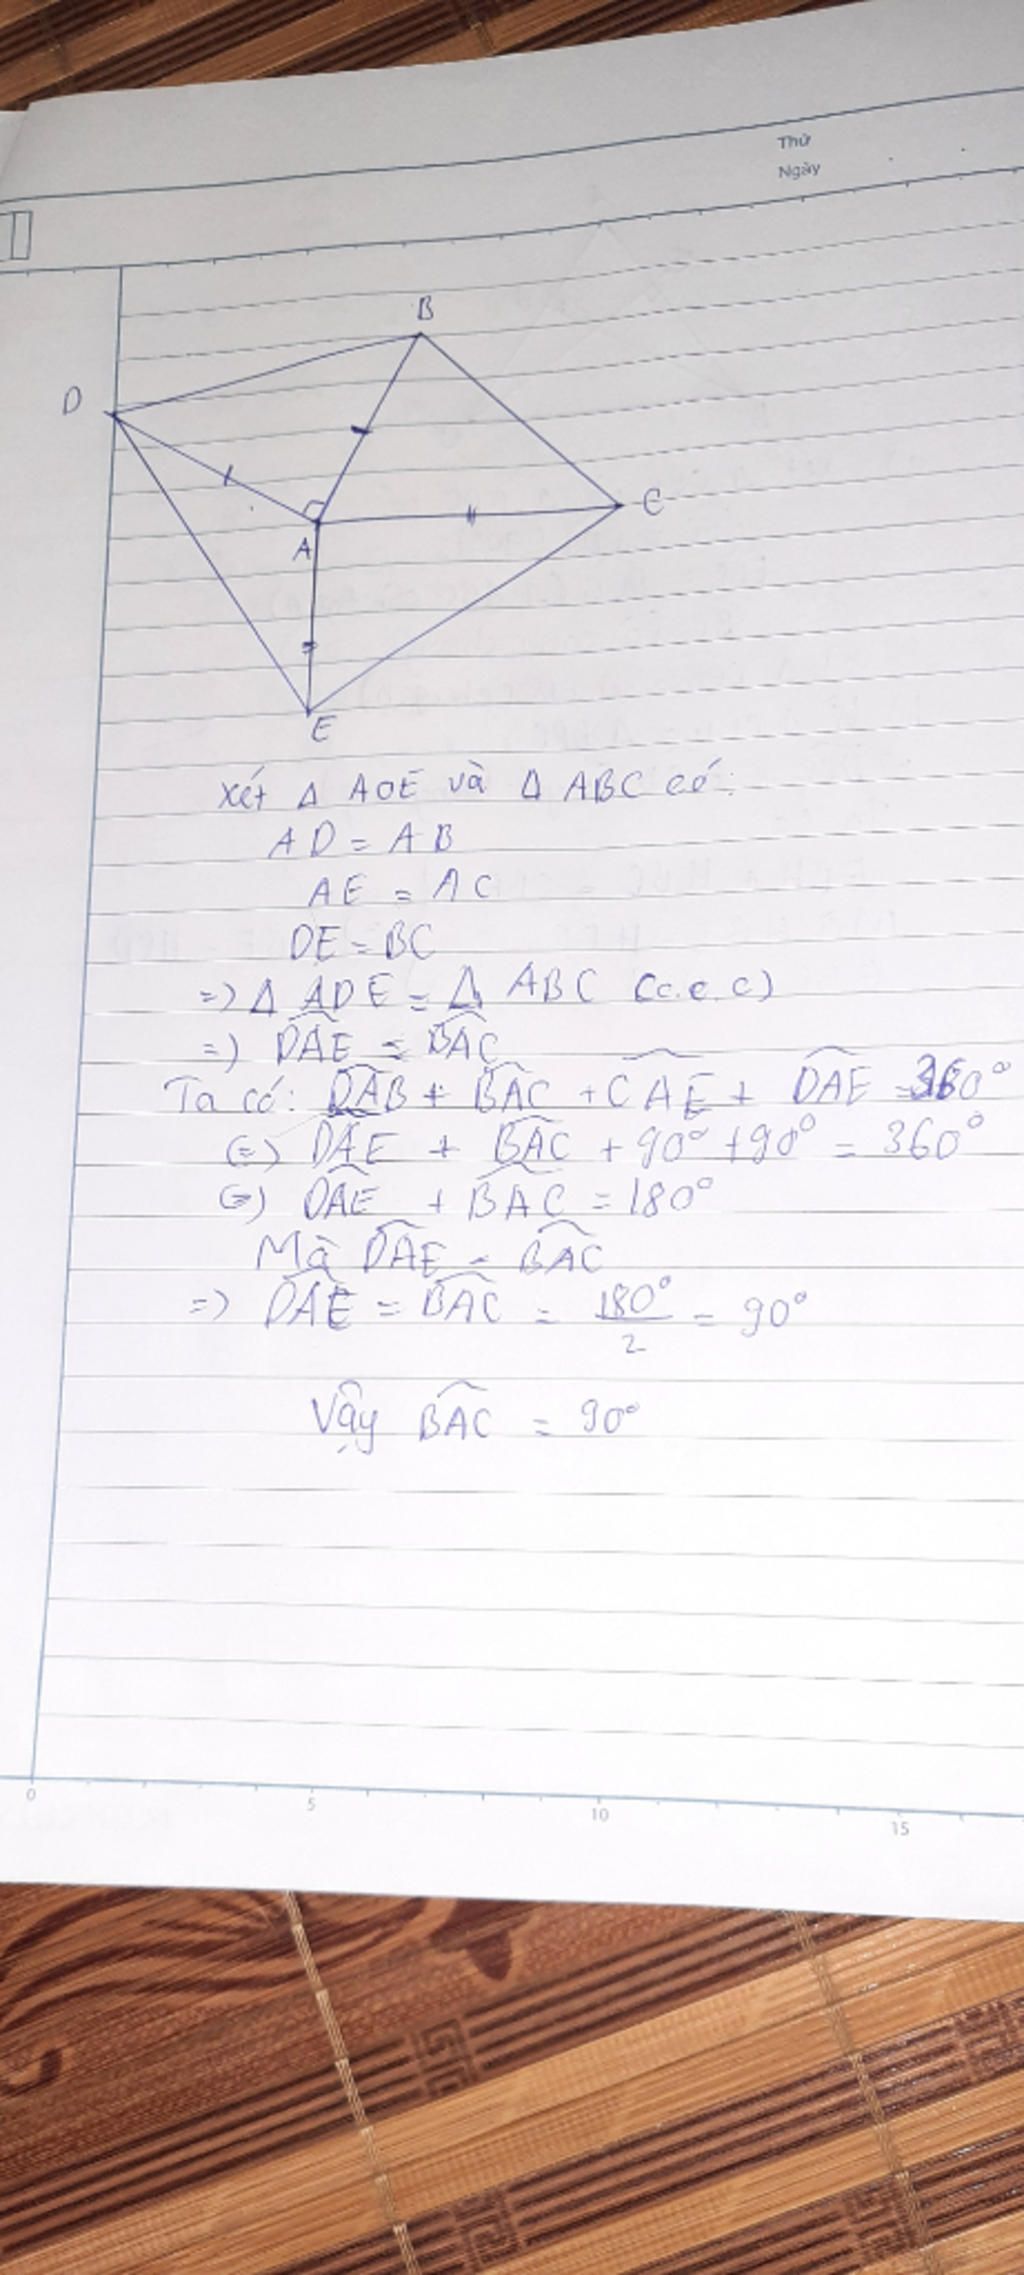 Thứ
Ngày
B
D
C
A
E
Xét Δ AOE và Δ ABC có:
AD = AB
AE = AC
DE = BC
=) Δ ADE = Δ ABC (c.c.c)
=) DAE = BAC
Ta có: DAB + BAC + CAE + DAE = 360°
(=) DAE + BAC + 90° + 90° = 360°
(=) DAE + BAC = 180°
Mà DAE = BAC
=) DAE = BAC = 180°/2 = 90°
Vậy BAC = 90°
0 5 10 15